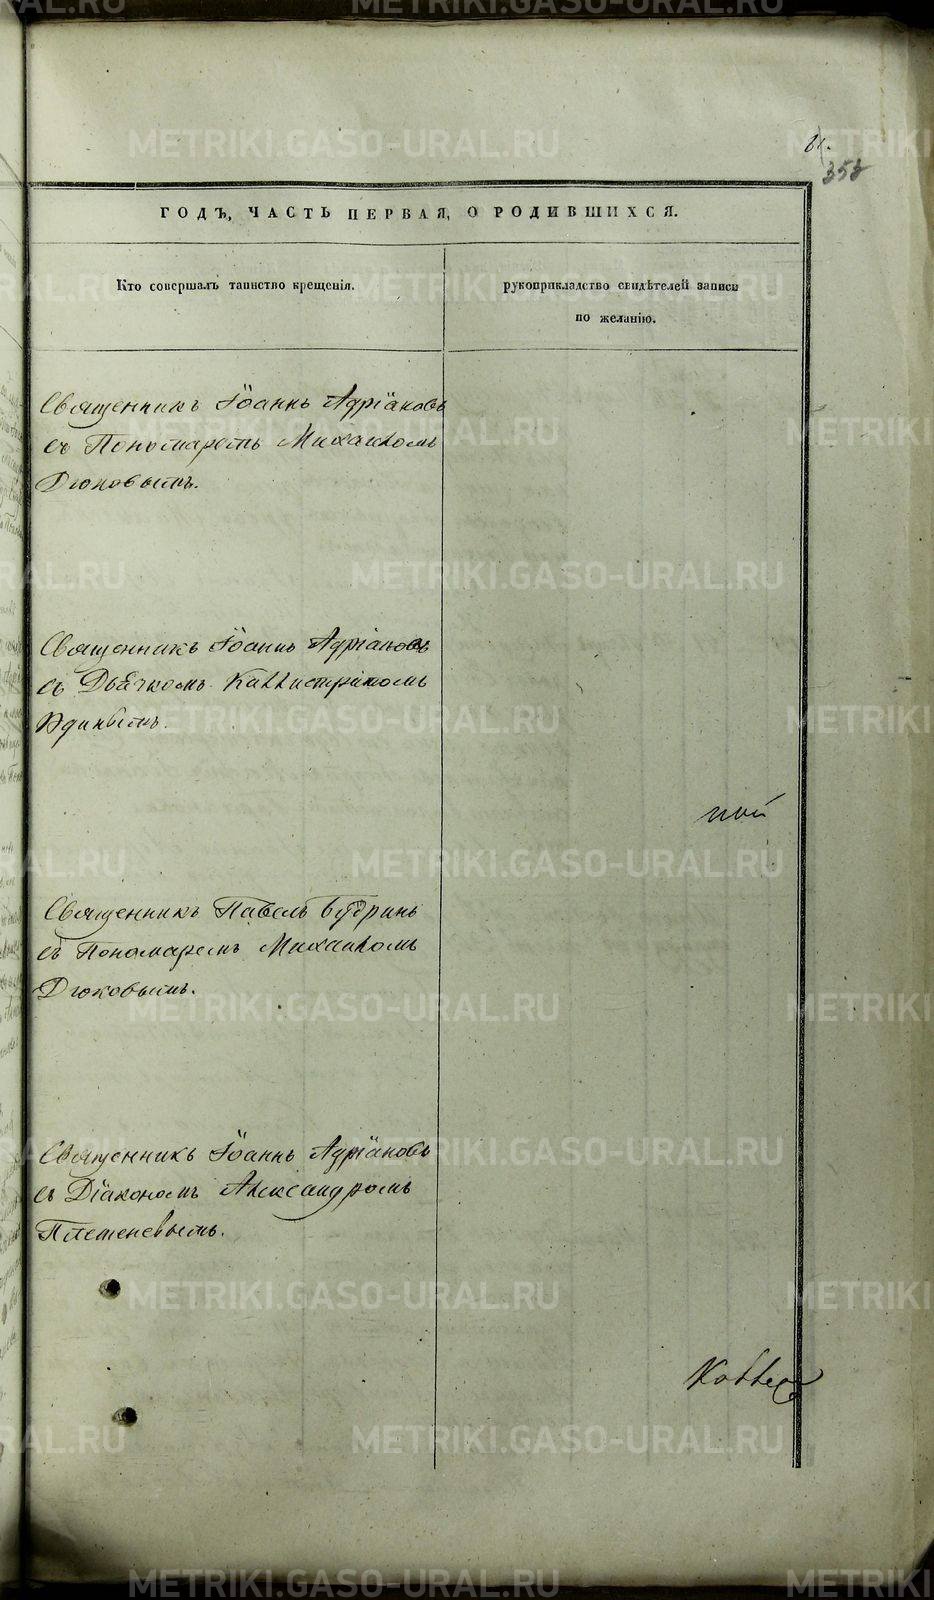 61.
358
ГОДЪ, ЧАСТЬ ПЕРВАЯ, О РОДИВШИХСЯ.
Кто совершалъ таинство крещенія.
рукоприкладство свидѣтелей записи
по желанію.
Священникъ Іоаннъ Адріановъ
съ Пономаремъ Михаиломъ
Дюковымъ.
Священникъ Іоаннъ Адріановъ
съ Дьячкомъ Каллистратомъ
Удинымъ.
ной
Священникъ Павелъ Будринъ
съ Пономаремъ Михаиломъ
Дюковымъ.
Священникъ Іоаннъ Адріановъ
съ Діакономъ Александромъ
Плетеневымъ.
Коллеж
METRIKI.GASO-URAL.RU